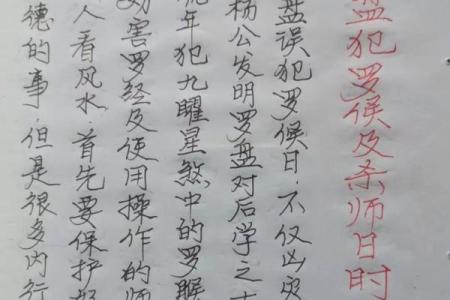 盘犯罗候及杀师日时
盘误犯罗候日·不仅凶灾
杨公发明罗盘对后学之
流年犯九曜星煞中的罗睺
劝害罗经及使用操作的师
人看风水·首先要保护好
德的事·但是很多内行